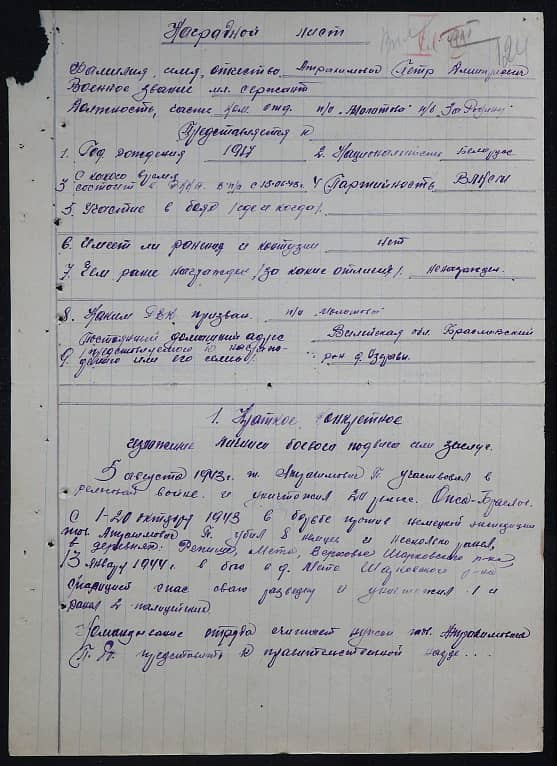 Наградной лист
124
Фамилия, имя, отчество Апрасимович Петр Дмитриевич
Военное звание мл. сержант
Должность, часть ком. отд. п/о "Молотова" п/б "За Родину"
Представляется к
1. Год рождения 1917 2. Национальность Беларус
3. С какого время состоит в п/о с 15-06-43 г. 4 Партийность ВЛКСМ
5. Участие в боях /где и когда/.
6. Имеет ли ранения и контузии нет
7. Чем ране награжден /за какие отличия/. ненагражден.
8. Каким РВК призван. п/о Молотова
Постоянный домашний адрес Вилейская обл. Браславский
9. представляемого к награж- рон д.
дению или его семьи
1. Краткое, конкретное
изложение личного боевого подвига или заслуг.
5 августа 1943 г. т. П. участвовал в
рельсовой войне. и уничтожил 20 рельс.
С 1-20 октября 1943 в борьбе против немецкой экспедиции
тов. П. убил 8 немцев и несколько ранил,
в деревнях: Шарковского р-на
13 января 1944 г. в бою в д. Шарковского р-на
спас свою разведку и уничтожил 1 и
ранил 2 полицейских
Командование отряда считает нужным тов.
П. Д. представить к правительственной награде...